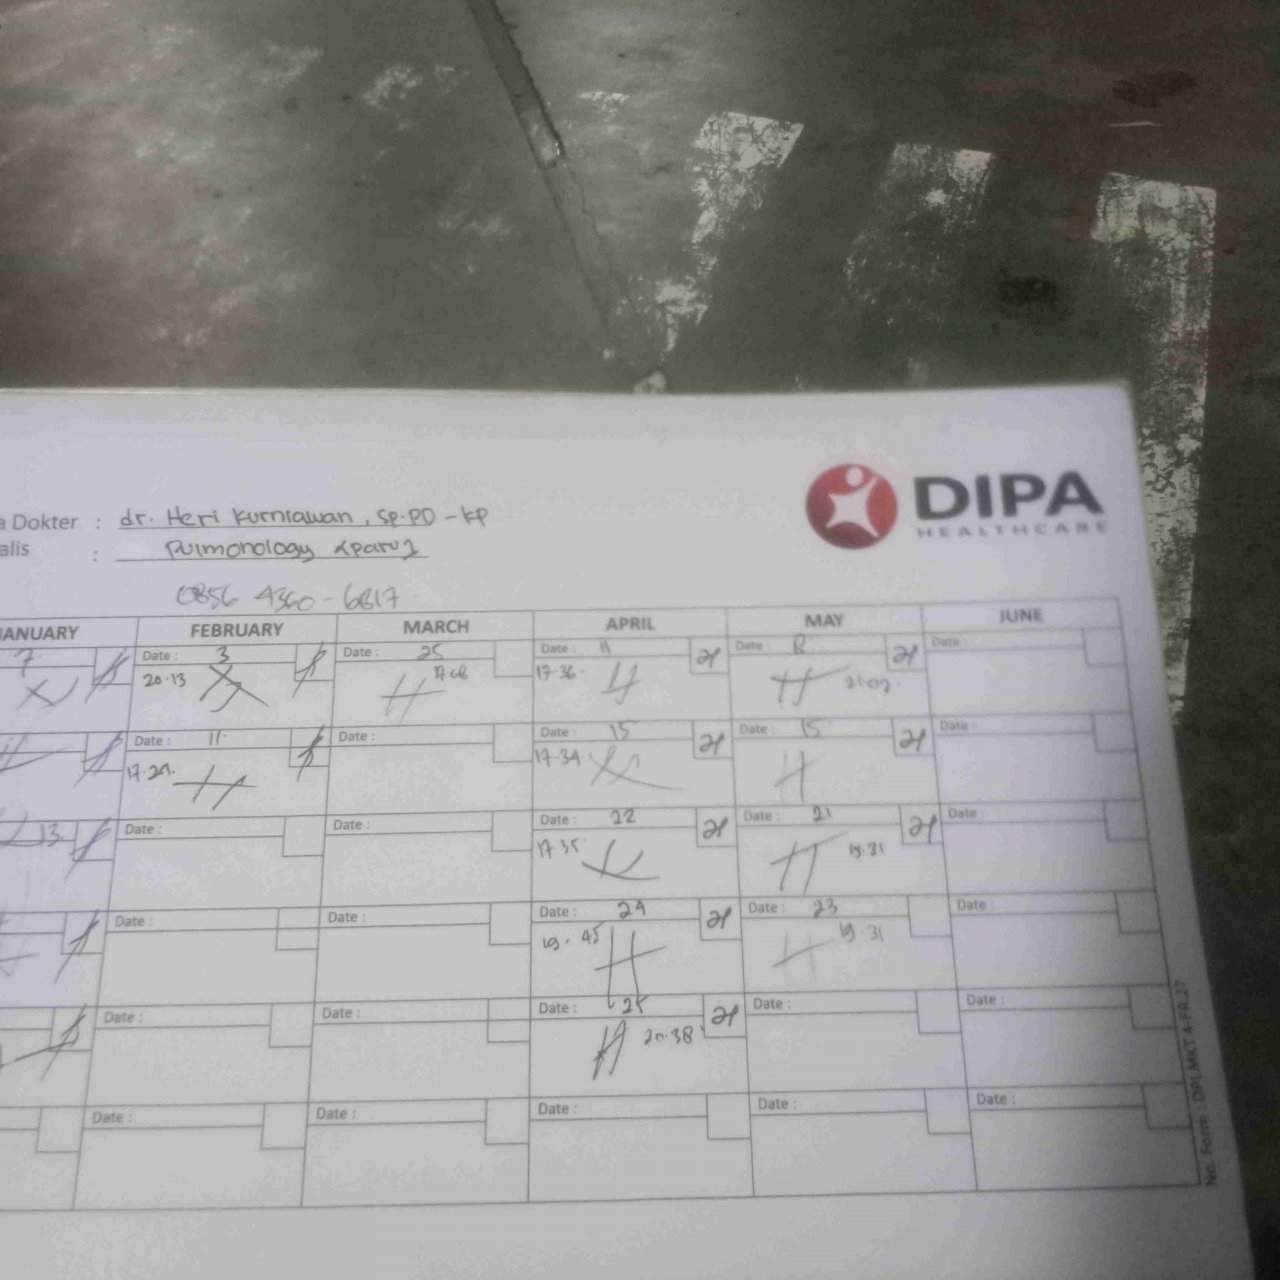 DIPA
HEALTHCARE
a Dokter : dr. Heri Kurniawan, SP.PD - KP
alis : Pulmonology (paru)
0856 4360 - 6817
JANUARY FEBRUARY MARCH APRIL MAY JUNE
7 Date : 3 Date : 25 Date : 11 Date : 8 Date :
20.13 17.08 17.36 21.02
Date : 11 Date : Date : 15 Date : 15 Date :
17.34
13 Date : Date : Date : 22 Date : 21 Date :
17.35 19.31
Date : Date : Date : 24 Date : 23 Date :
19.45 19.31
Date : Date : Date : 25 Date : Date :
20.38
Date : Date : Date : Date : Date :
No. Form : DPI.MKT.4-FR.37